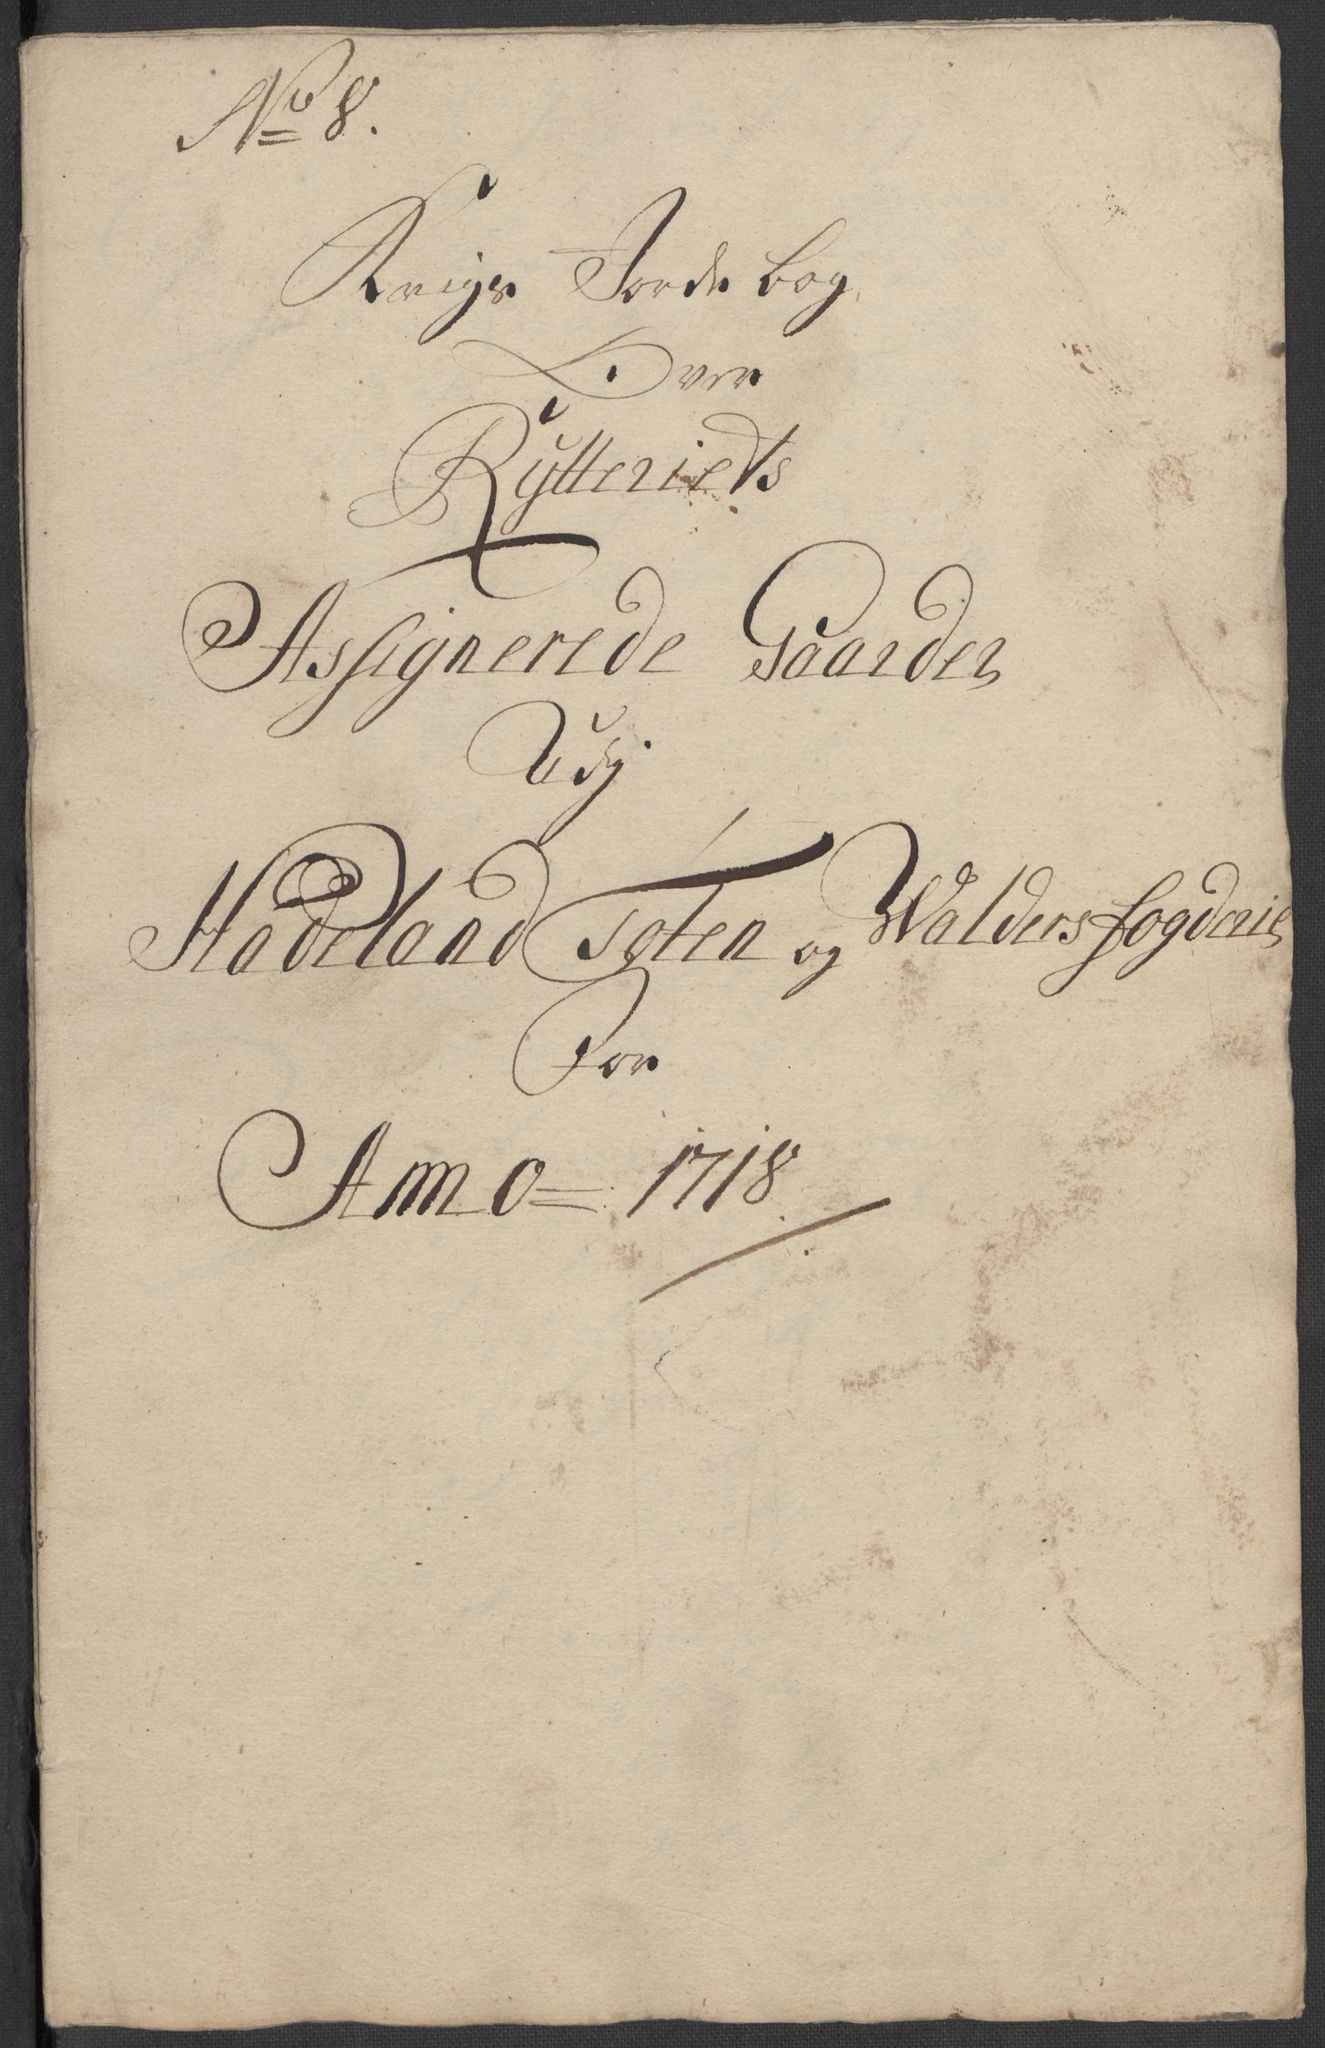 No 8.
Krigs Jorde bog
Over
Rytteriets
Assignerede Gaarder
Udj
Hadeland Toten og Walders fogderie
For
Anno 1718